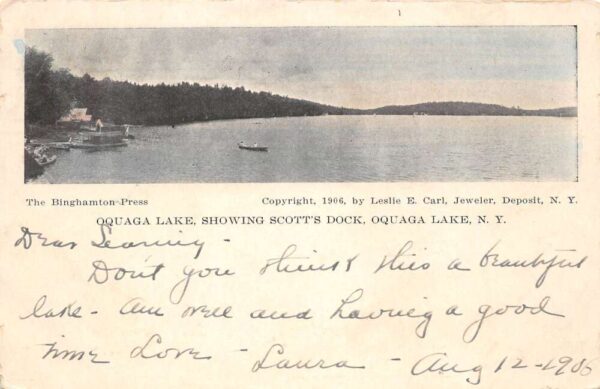 The Binghamton Press Copyright, 1906, by Leslie E. Carl, Jeweler, Deposit, N. Y.
OQUAGA LAKE, SHOWING SCOTT'S DOCK, OQUAGA LAKE, N. Y.
Dear
Don't you think this a beautiful
lake - am well and having a good
time Love - Laura - Aug 12-1906